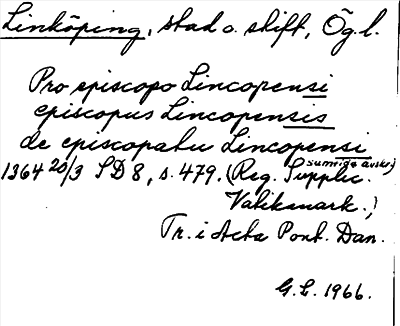 Linköping, stad o. stift, Ög.l.
Pro episcopo Lincopensi
episcopus Lincopensis
de episcopatu Lincopensi
1364 20/3 SD 8, s. 479. (Reg. Supplic.
samtida avskr.)
Vatikanark.)
Tr. i Acta Pont. Dan.
G.L. 1966.